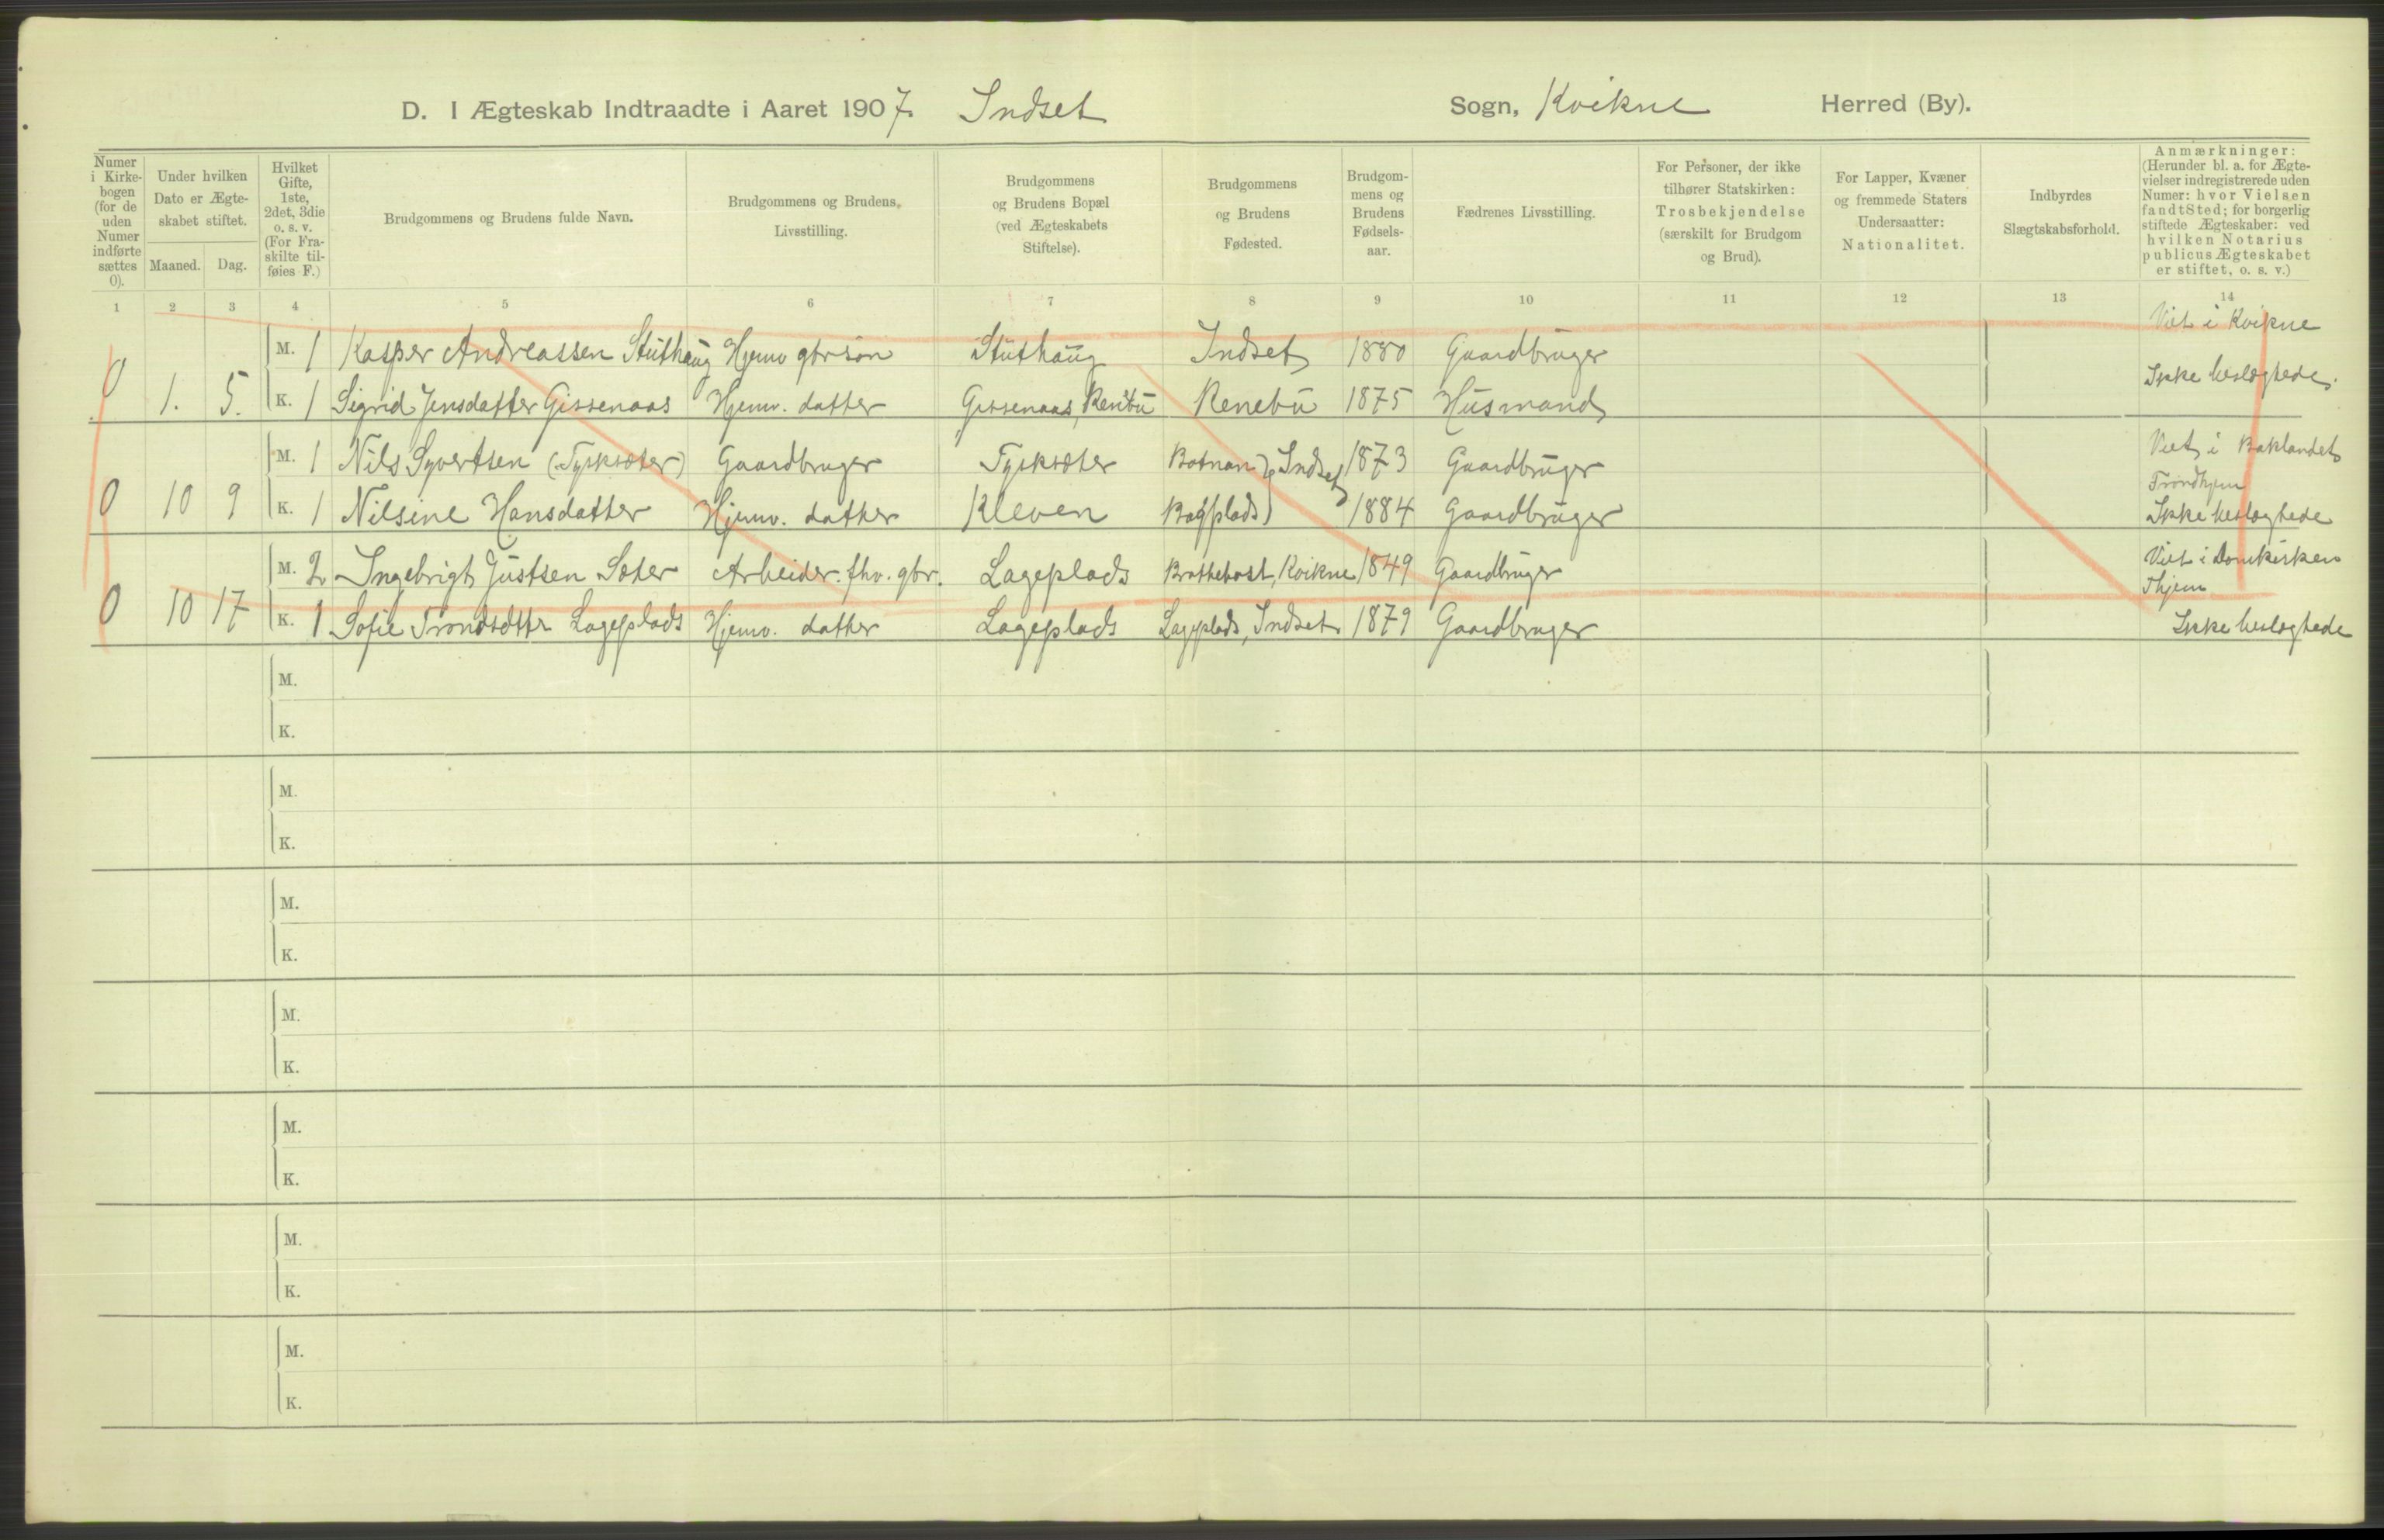 D. I Ægteskab Indtraadte i Aaret 1907. Indset Sogn, Kvikne Herred (By).
Numer i Kirkebogen (for de uden Numer indførte sættes 0).
Under hvilken Dato er Ægteskabet stiftet.
Maaned. Dag.
Hvilket Gifte, 1ste, 2det, 3die o. s. v. (For Fraskilte tilføies F.)
Brudgommens og Brudens fulde Navn.
Brudgommens og Brudens Livsstilling.
Brudgommens og Brudens Bopæl (ved Ægteskabets Stiftelse).
Brudgommens og Brudens Fødested.
Brudgommens og Brudens Fødselsaar.
Fædrenes Livsstilling.
For Personer, der ikke tilhører Statskirken: Trosbekjendelse (særskilt for Brudgom og Brud).
For Lapper, Kvæner og fremmede Staters Undersaatter: Nationalitet.
Indbyrdes Slægtskabsforhold.
Anmærkninger: (Herunder bl. a. for Ægtevielser indregistrerede uden Numer: hvor Vielsen fandt Sted; for borgerlig stiftede Ægteskaber: ved hvilken Notarius publicus Ægteskabet er stiftet, o. s. v.)
1 2 3 4 5 6 7 8 9 10 11 12 13 14
M. 1 Kasper Andreassen Stuthaug Hjemv gbrsøn Stuthaug Indset 1880 Gaardbruger Viet i Kvikne
0 1. 5. K. 1 Sigrid Jensdatter Gissenaas Hjemv. datter Gissenaas, Renbu Renebu 1875 Husmand Ikke beslægtede.
M. 1 Nils Syvertsen (Tysksæter) Gaardbruger Tysksæter Botnan } Indset 1873 Gaardbruger Viet i Baklandet Trondhjem
0 10 9 K. 1 Nilsine Hansdatter Hjemv. datter Kleven Bagplads 1884 Gaardbruger Ikke beslægtede
M. 2 Ingebrigt Justsen Sæter Arbeider. fhv. gbr. Lageplads Brattebast, Kvikne 1849 Gaardbruger Viet i Domkirken Thjem
0 10 17 K. 1 Sofie Trondsdttr Lageplads Hjemv. datter Lageplads Lageplads, Indset 1879 Gaardbruger Ikke beslægtede
M.
K.
M.
K.
M.
K.
M.
K.
M.
K.
M.
K.
M.
K.